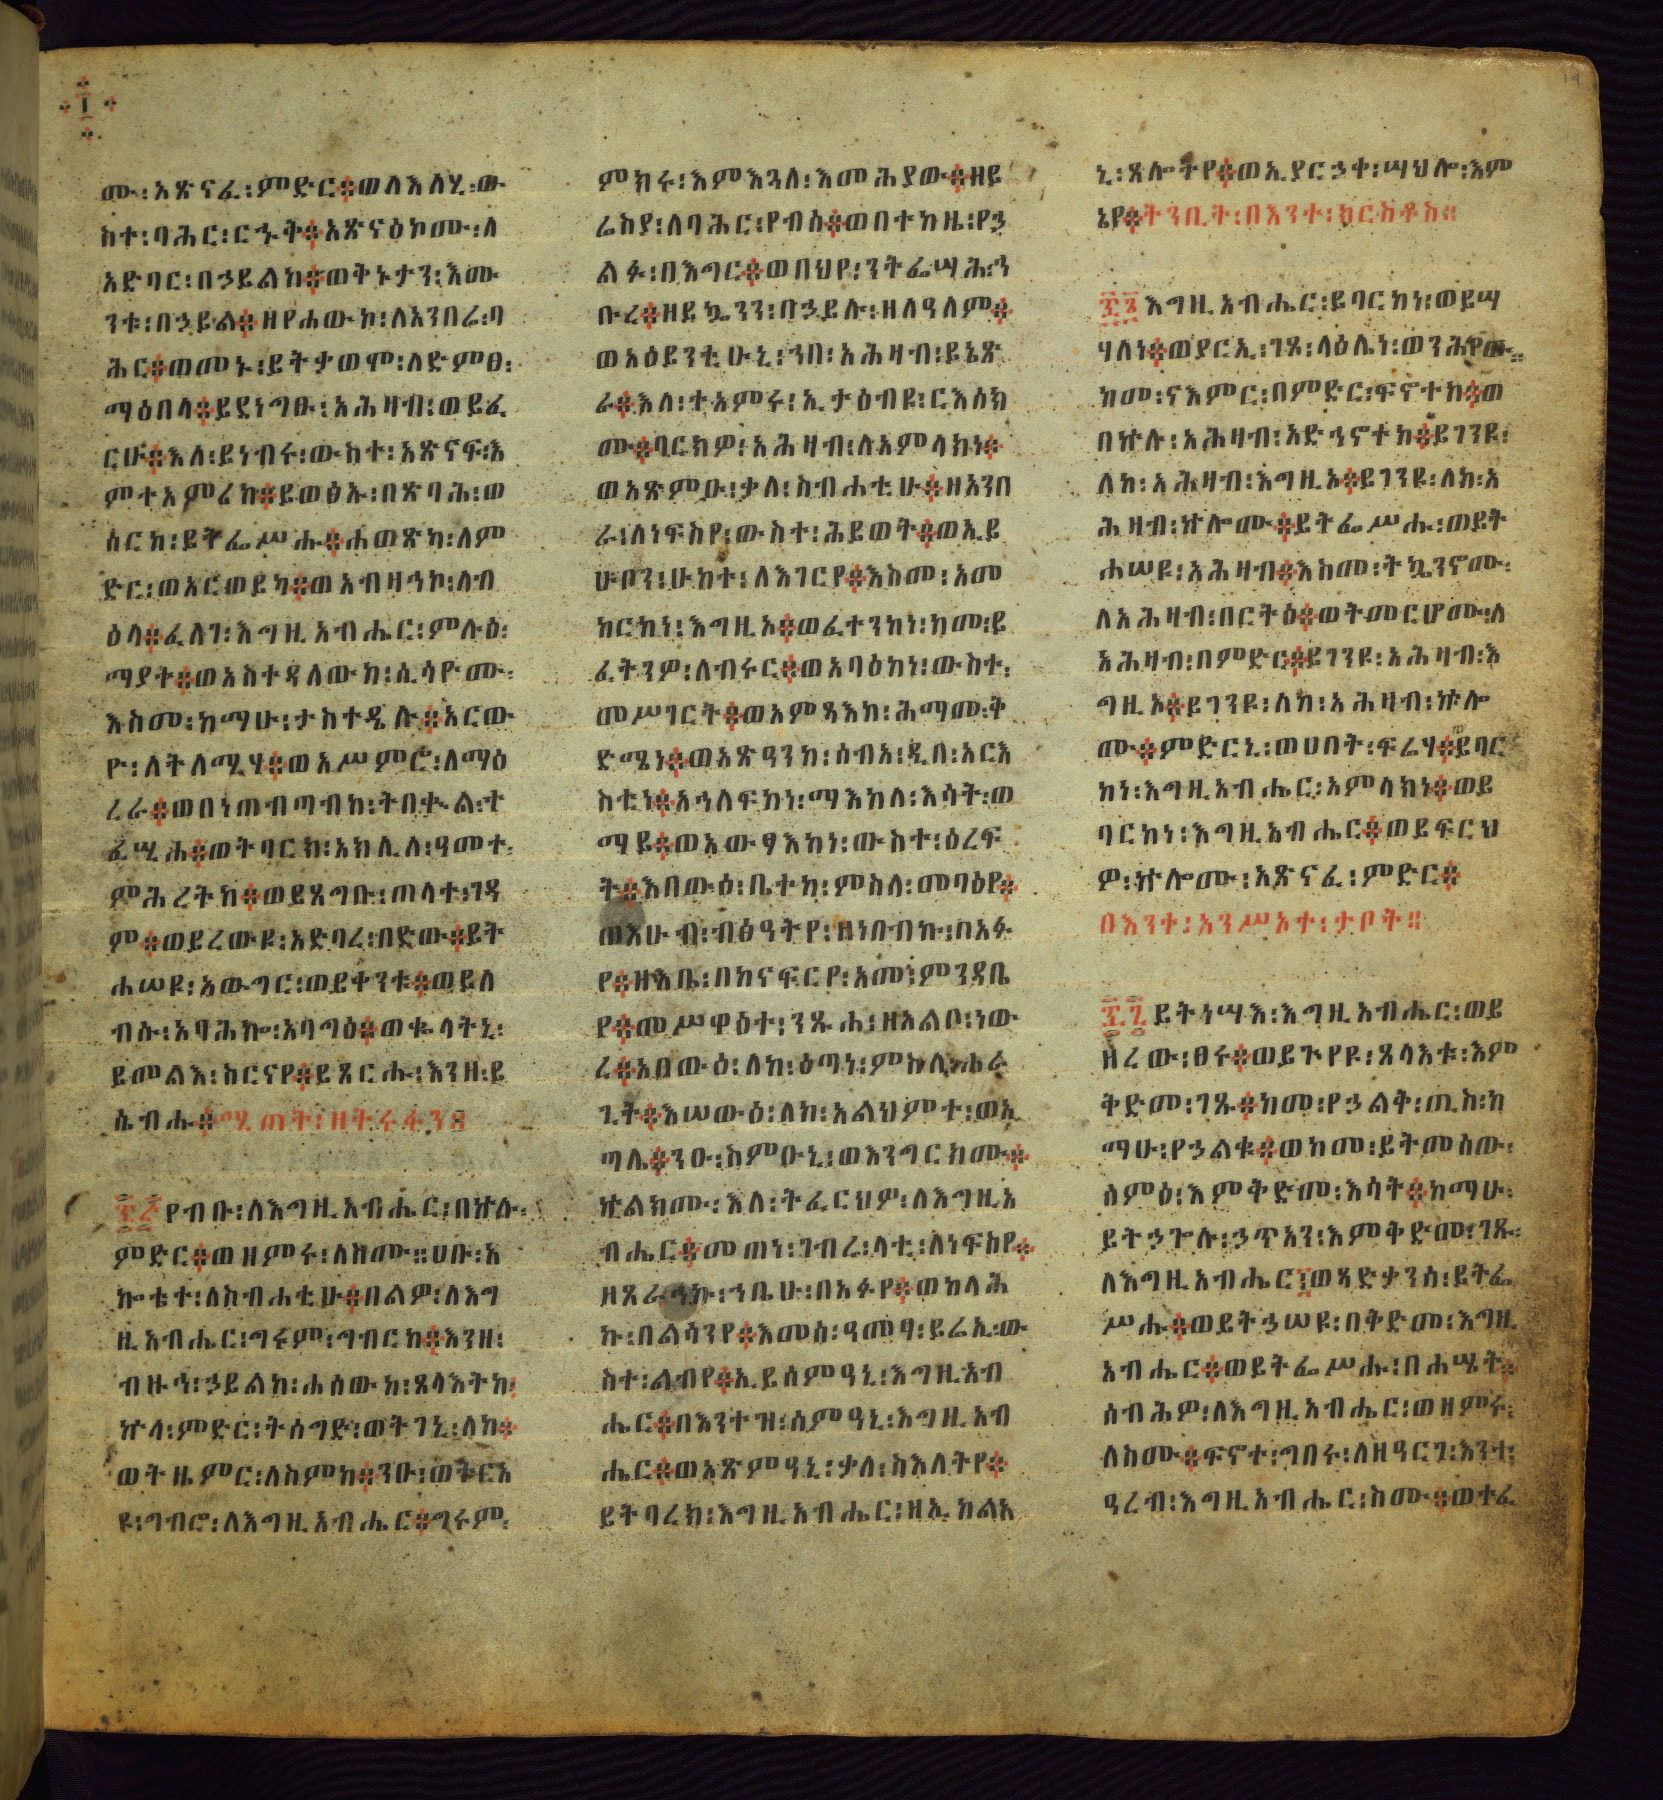 ፲
ሙ፡አጽናፈ፡ምድር፨ወለእለሂ፡ው
ስተ፡ባሕር፡ርኁቅ፨አጽናዕኮሙ፡ለ
አድባር፡በኃይልከ፨ወቅኑታን፡እሙ
ንቱ፡በኃይል፨ዘየሐውኮ፡ለአንበሬ፡ባ
ሕር፨ወመኑ፡ይትቃወሞ፡ለድምፀ፡
ማዕበላ፨ይደነግፁ፡አሕዛብ፡ወይፈ
ርሁ፨እለ፡ይነብሩ፡ውስተ፡አጽናፍ፡እ
ምተአምሪከ፨ይወፅኡ፡በጽባሕ፡ወ
ሰርከ፡ይትፌሥሑ፨ሐወጽካ፡ለም
ድር፡ወአርወይካ፨ወአብዛኅኮ፡ለብ
ዕላ፨ፈለገ፡እግዚአብሔር፡ምሉዕ፡
ማያት፨ወአስተዳለውከ፡ሲሳዮሙ፡
እስመ፡ከማሁ፡ታስተዴሉ፨አርው
ዮ፡ለትለሚሃ፨ወአሥምሮ፡ለማዕ
ረራ፨ወበነጠብጣብከ፡ትበቍል፡ተ
ፈሢሓ፨ወትባርክ፡አክሊለ፡ዓመተ፡
ምሕረትከ፨ወይጸግቡ፡ጠላተ፡ገዳ
ም፨ወይረውዩ፡አድባረ፡በድው፨ይት
ሐሠዩ፡አውግር፡ወይቀንቱ፨ወይለ
ብሱ፡አባሕኰ፡አባግዕ፨ወቈላትኒ፡
ይመልእ፡ስርናየ፨ይጸርሑ፡እንዘ፡ይ
ሴብሑ፨ሚጠት፡ዘትሩፋን፨
፷፭የብቡ፡ለእግዚአብሔር፡በኵሉ፡
ምድር፨ወዘምሩ፡ለስሙ።ሀቡ፡አ
ኰቴተ፡ለስብሐቲሁ፨በልዎ፡ለእግ
ዚአብሔር፡ግሩም፡ግብርከ፨እንዘ፡
ብዙኅ፡ኃይልከ፡ሐሰውከ፡ጸላእትከ፡
ኵላ፡ምድር፡ትሰግድ፡ወትገኒ፡ለከ፨
ወትዜምር፡ለስምከ፨ንዑ፡ወትርአ
ዩ፡ግብሮ፡ለእግዚአብሔር፨ግሩም፡
ምክሩ፡እምእጓለ፡እመሕያው፨ዘይ
ሬስያ፡ለባሕር፡የብሰ፨ወበተከዜ፡የኃ
ልፉ፡በእግር፨ወበህየ፡ንትፌሣሕ፡ኅ
ቡረ፨ዘይኴንን፡በኃይሉ፡ዘለዓለም፨
ወአዕይንቲሁኒ፡ኀበ፡አሕዛብ፡ይኔጽ
ራ፨እለ፡ተአምሩ፡ኢታዕብዩ፡ርእሰክ
ሙ፨ባርክዎ፡አሕዛብ፡ለአምላክነ፨
ወአጽምዑ፡ቃለ፡ስብሐቲሁ፨ዘአንበ
ራ፡ለነፍስየ፡ውስተ፡ሕይወት፨ወኢይ
ሁቦን፡ሁከተ፡ለእገርየ፨እስመ፡አመ
ከርከነ፡እግዚኦ፨ወፈተንከነ፡ከመ፡ይ
ፈትንዎ፡ለብሩር፨ወአባዕከነ፡ውስተ፡
መሥገርት፨ወአምጻእከ፡ሕማመ፡ቅ
ድሜነ፨ወአጽዓንከ፡ሰብአ፡ዲበ፡አርእ
ስቲነ፨አኅለፍከነ፡ማእከለ፡እሳት፡ወ
ማይ፨ወአውፃእከነ፡ውስተ፡ዕረፍ
ት፨እበውዕ፡ቤተከ፡ምስለ፡መባዕየ፨
ወእሁብ፡ብፅዓትየ፡ዘነበብኩ፡በአፉ
የ፨ዘእቤ፡በከናፍርየ፡አመ፡ምንዳቤ
የ፨መሥዋዕተ፡ንጹሐ፡ዘአልቦ፡ነው
ረ፨አበውዕ፡ለከ፡ዕጣነ፡ምስለ፡ሐራ
ጊት፨እሠውዕ፡ለከ፡አልህምተ፡ወአ
ጣሌ፨ንዑ፡ስምዑኒ፡ወእንግርክሙ፨
ኵልክሙ፡እለ፡ትፈርህዎ፡ለእግዚአ
ብሔር፨መጠነ፡ገብረ፡ላቲ፡ለነፍስየ፨
ዘጸራኅኩ፡ኀቤሁ፡በአፉየ፨ወከላሕ
ኩ፡በልሳንየ፨እመሰ፡ዓመፃ፡ይሬኢ፡ው
ስተ፡ልብየ፨ኢይሰምዓኒ፡እግዚአብ
ሔር፨በእንተዝ፡ሰምዓኒ፡እግዚአብ
ሔር፨ወአጽምዓኒ፡ቃለ፡ስእለትየ፨
ይትባረክ፡እግዚአብሔር፡ዘኢከልአ
ኒ፡ጸሎትየ፨ወኢያርኃቀ፡ሣህሎ፡እም
ኔየ፨ትንቢት፡በእንተ፡ክርስቶስ።
፷፮እግዚአብሔር፡ይባርከነ፡ወይሣ
ሃለነ፨ወያርኢ፡ገጾ፡ላዕሌነ፡ወንሕየው።
ከመ፡ናእምር፡በምድር፡ፍኖተከ፨ወ
በኵሉ፡አሕዛብ፡አድኅኖተከ፨ይገንዩ፡
ለከ፡አሕዛብ፡እግዚኦ፨ይገንዩ፡ለከ፡አ
ሕዛብ፡ኵሎሙ፨ይትፌሥሑ፡ወይት
ሐሠዩ፡አሕዛብ፨እስመ፡ትኴንኖሙ፡
ለአሕዛብ፡በርትዕ፨ወትመርሆሙ፡ለ
አሕዛብ፡በምድር፨ይገንዩ፡አሕዛብ፡እ
ግዚኦ፨ይገንዩ፡ለከ፡አሕዛብ፡ኵሎ
ሙ፨ምድርኒ፡ወሀበት፡ፍሬሃ፨ይባር
ከነ፡እግዚአብሔር፡አምላክነ፨ወይ
ባርከነ፡እግዚአብሔር፨ወይፍርህ
ዎ፡ኵሎሙ፡አጽናፈ፡ምድር፨
በእንተ፡አንሥአተ፡ታቦት።
፷፯ይትነሣእ፡እግዚአብሔር፡ወይ
ዘረው፡ፀሩ፨ወይጕየዩ፡ጸላእቱ፡እም
ቅድመ፡ገጹ፨ከመ፡የኃልቅ፡ጢስ፡ከ
ማሁ፡የኃልቁ፨ወከመ፡ይትመሰው፡
ሰምዕ፡እምቅድመ፡እሳት፨ከማሁ፡
ይትኃጐሉ፡ኃጥአን፡እምቅድመ፡ገጹ፡
ለእግዚአብሔር፡ወጻድቃንሰ፡ይትፌ
ሥሑ፨ወይትኃሠዩ፡በቅድመ፡እግዚ
አብሔር፨ወይትፌሥሑ፡በሐሤት፨
ሰብሕዎ፡ለእግዚአብሔር፡ወዘምሩ፡
ለስሙ፨ፍኖተ፡ግበሩ፡ለዘዓርገ፡እንተ፡
ዓረብ፡እግዚአብሔር፡ስሙ፨ወተፈ